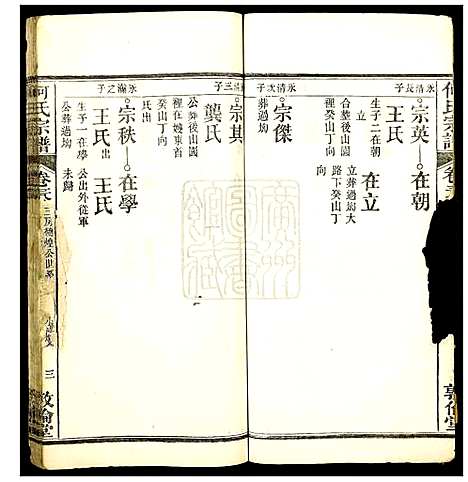 何氏宗譜
敦倫堂
永清長子
宗英 在朝
王氏
生子二在朝
在立
合塟後山園
裡癸山丁向
在立
立葬過坳大
路下癸山丁
向
永清次子
宗傑
葬過坳
清三子
宗其
公葬後山園
裡在嫂東首
癸山丁向
龔氏
氏出
永瀛之子
宗秩 在學
王氏出 王氏
生子一在學
公葬過坳
公出外從軍
未歸
何氏宗譜
卷
三房德煌公世系
三
敦倫堂